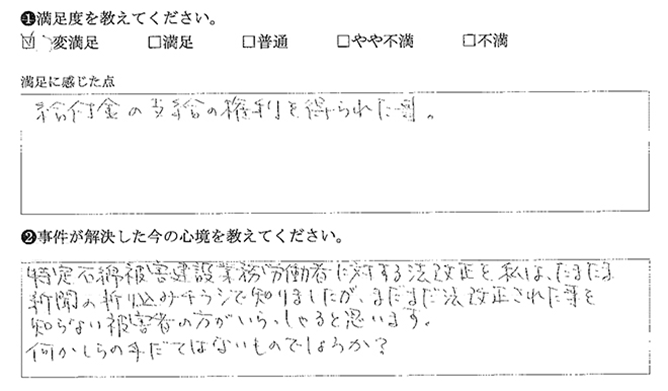 ❶満足度を教えてください。
☑大変満足 □満足 □普通 □やや不満 □不満
満足に感じた点
給付金の支給の権利を得られた事。
❷事件が解決した今の心境を教えてください。
特定石綿被害建設業務労働者に対する法改正を、私は、たまたま
新聞の折り込みチラシで知りましたが、まだまだ法改正された事を
知らない被害者の方がいらっしゃると思います。
何かしらの手だてはないものでしょうか?